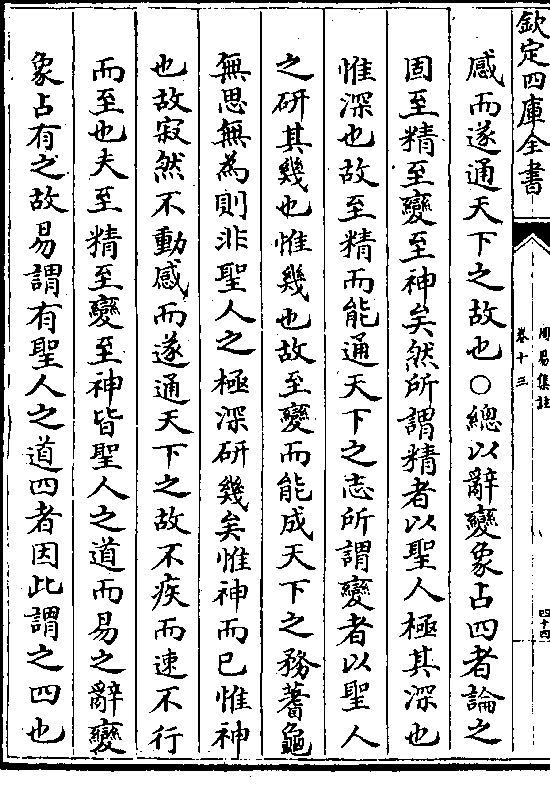 欽定四庫全書
周易集註
卷十三
四十四
感而遂通天下之故也○總以辭變象占四者論之
固至精至變至神矣然所謂精者以聖人極其深也
惟深也故至精而能通天下之志所謂變者以聖人
之研其幾也惟幾也故至變而能成天下之務蓍龜
無思無為則非聖人之極深研幾矣惟神而已惟神
也故寂然不動感而遂通天下之故不疾而速不行
而至也夫至精至變至神皆聖人之道而易之辭變
象占有之故易謂有聖人之道四者因此謂之四也